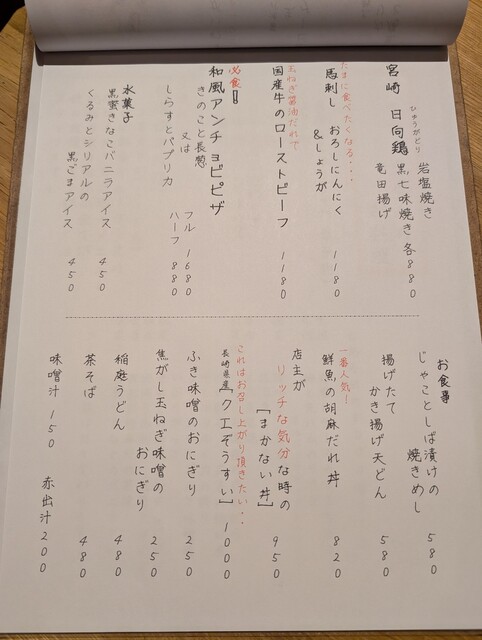 宮崎 日向鶏
ひゅうがどり
岩塩焼き
黒七味焼き 各880
竜田揚げ
たまに食べたくなる・・・
馬刺し おろしにんにく
&しょうが
1180
玉ねぎ醤油だれで
国産牛のローストビーフ 1180
必食!!
和風アンチョビピザ
きのこと長葱
又は
しらすとパプリカ
フル 1680
ハーフ 880
水菓子
黒蜜きなこバニラアイス 450
くるみとシリアルの
黒ごまアイス 450
お食事
じゃことしば漬けの
焼きめし 580
揚げたて
かき揚げ天どん 580
一番人気!
鮮魚の胡麻だれ丼 820
店主が
リッチな気分な時の
[まかない丼] 950
これはお召し上がり頂きたい・・
長崎県産[クエぞうすい] 1000
ふき味噌のおにぎり 250
焦がし玉ねぎ味噌の
おにぎり 250
稲庭うどん 480
茶そば 480
味噌汁 150 赤出汁 200